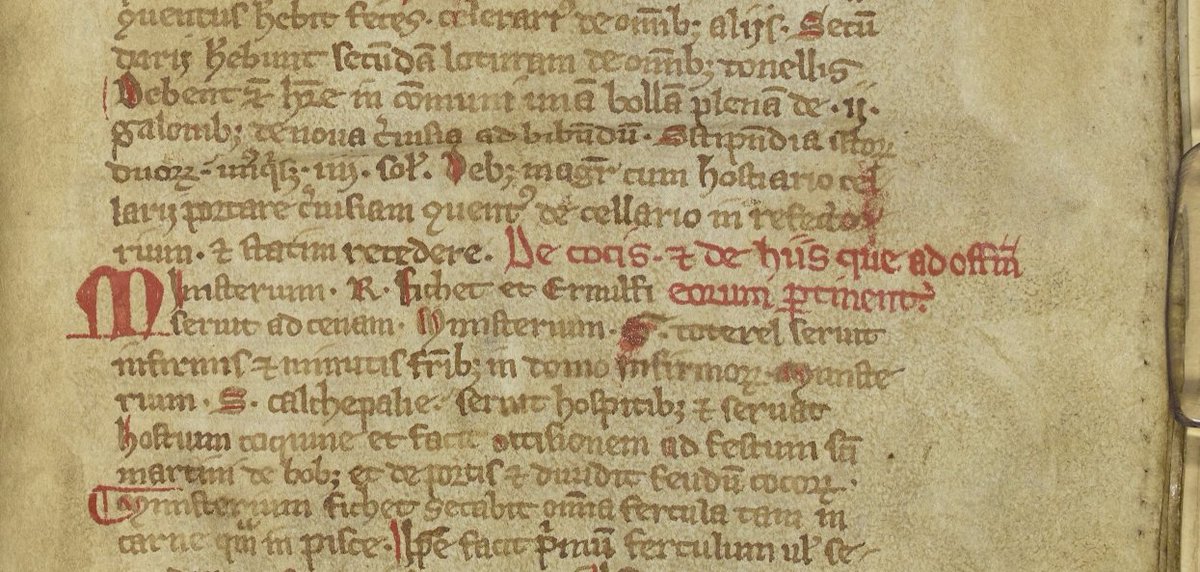 quentus h̄ebit feces. cel̄erari᷒ de om̄ib; alijs. Secū
darij h̄ebunt secūdā loturam de om̄ib; tonellis
Debent ⁊ h̄re in cōmuni unā bollā plenā de .ii.
galonib; de nova c̄uisia ad bibn̄dū. Stipn̄dia istoꝝ
duoꝝ. .iiij. sol̄. Deb; magr̄ cum hostiario cel
larij portare c̄uisiam quent᷒ de cellario in refecto
rium. ⁊ statim recedere. De cocis. ⁊ de hiis que ad offm̄
Ministerium. R. fichet et Ernulfi eorum ꝑtinent.
seruit ad cenam. Ministerium. S. coterel seruit
infirmis ⁊ minutis fr̄ib; in domo infirmoꝝ. Ministe
rium. S. calchepalie. seruit hospitib; ⁊ seruat
hostium coquine et facit occisionem ad festum sc̄i
martini de bob; et de porcis ⁊ diuidit feudū cocoꝝ.
Ministerium fichet secabit om̄ia fercula tam in
carne qm̄ in pisce. Ipse facit p̄mū ferculum ul̄ se-